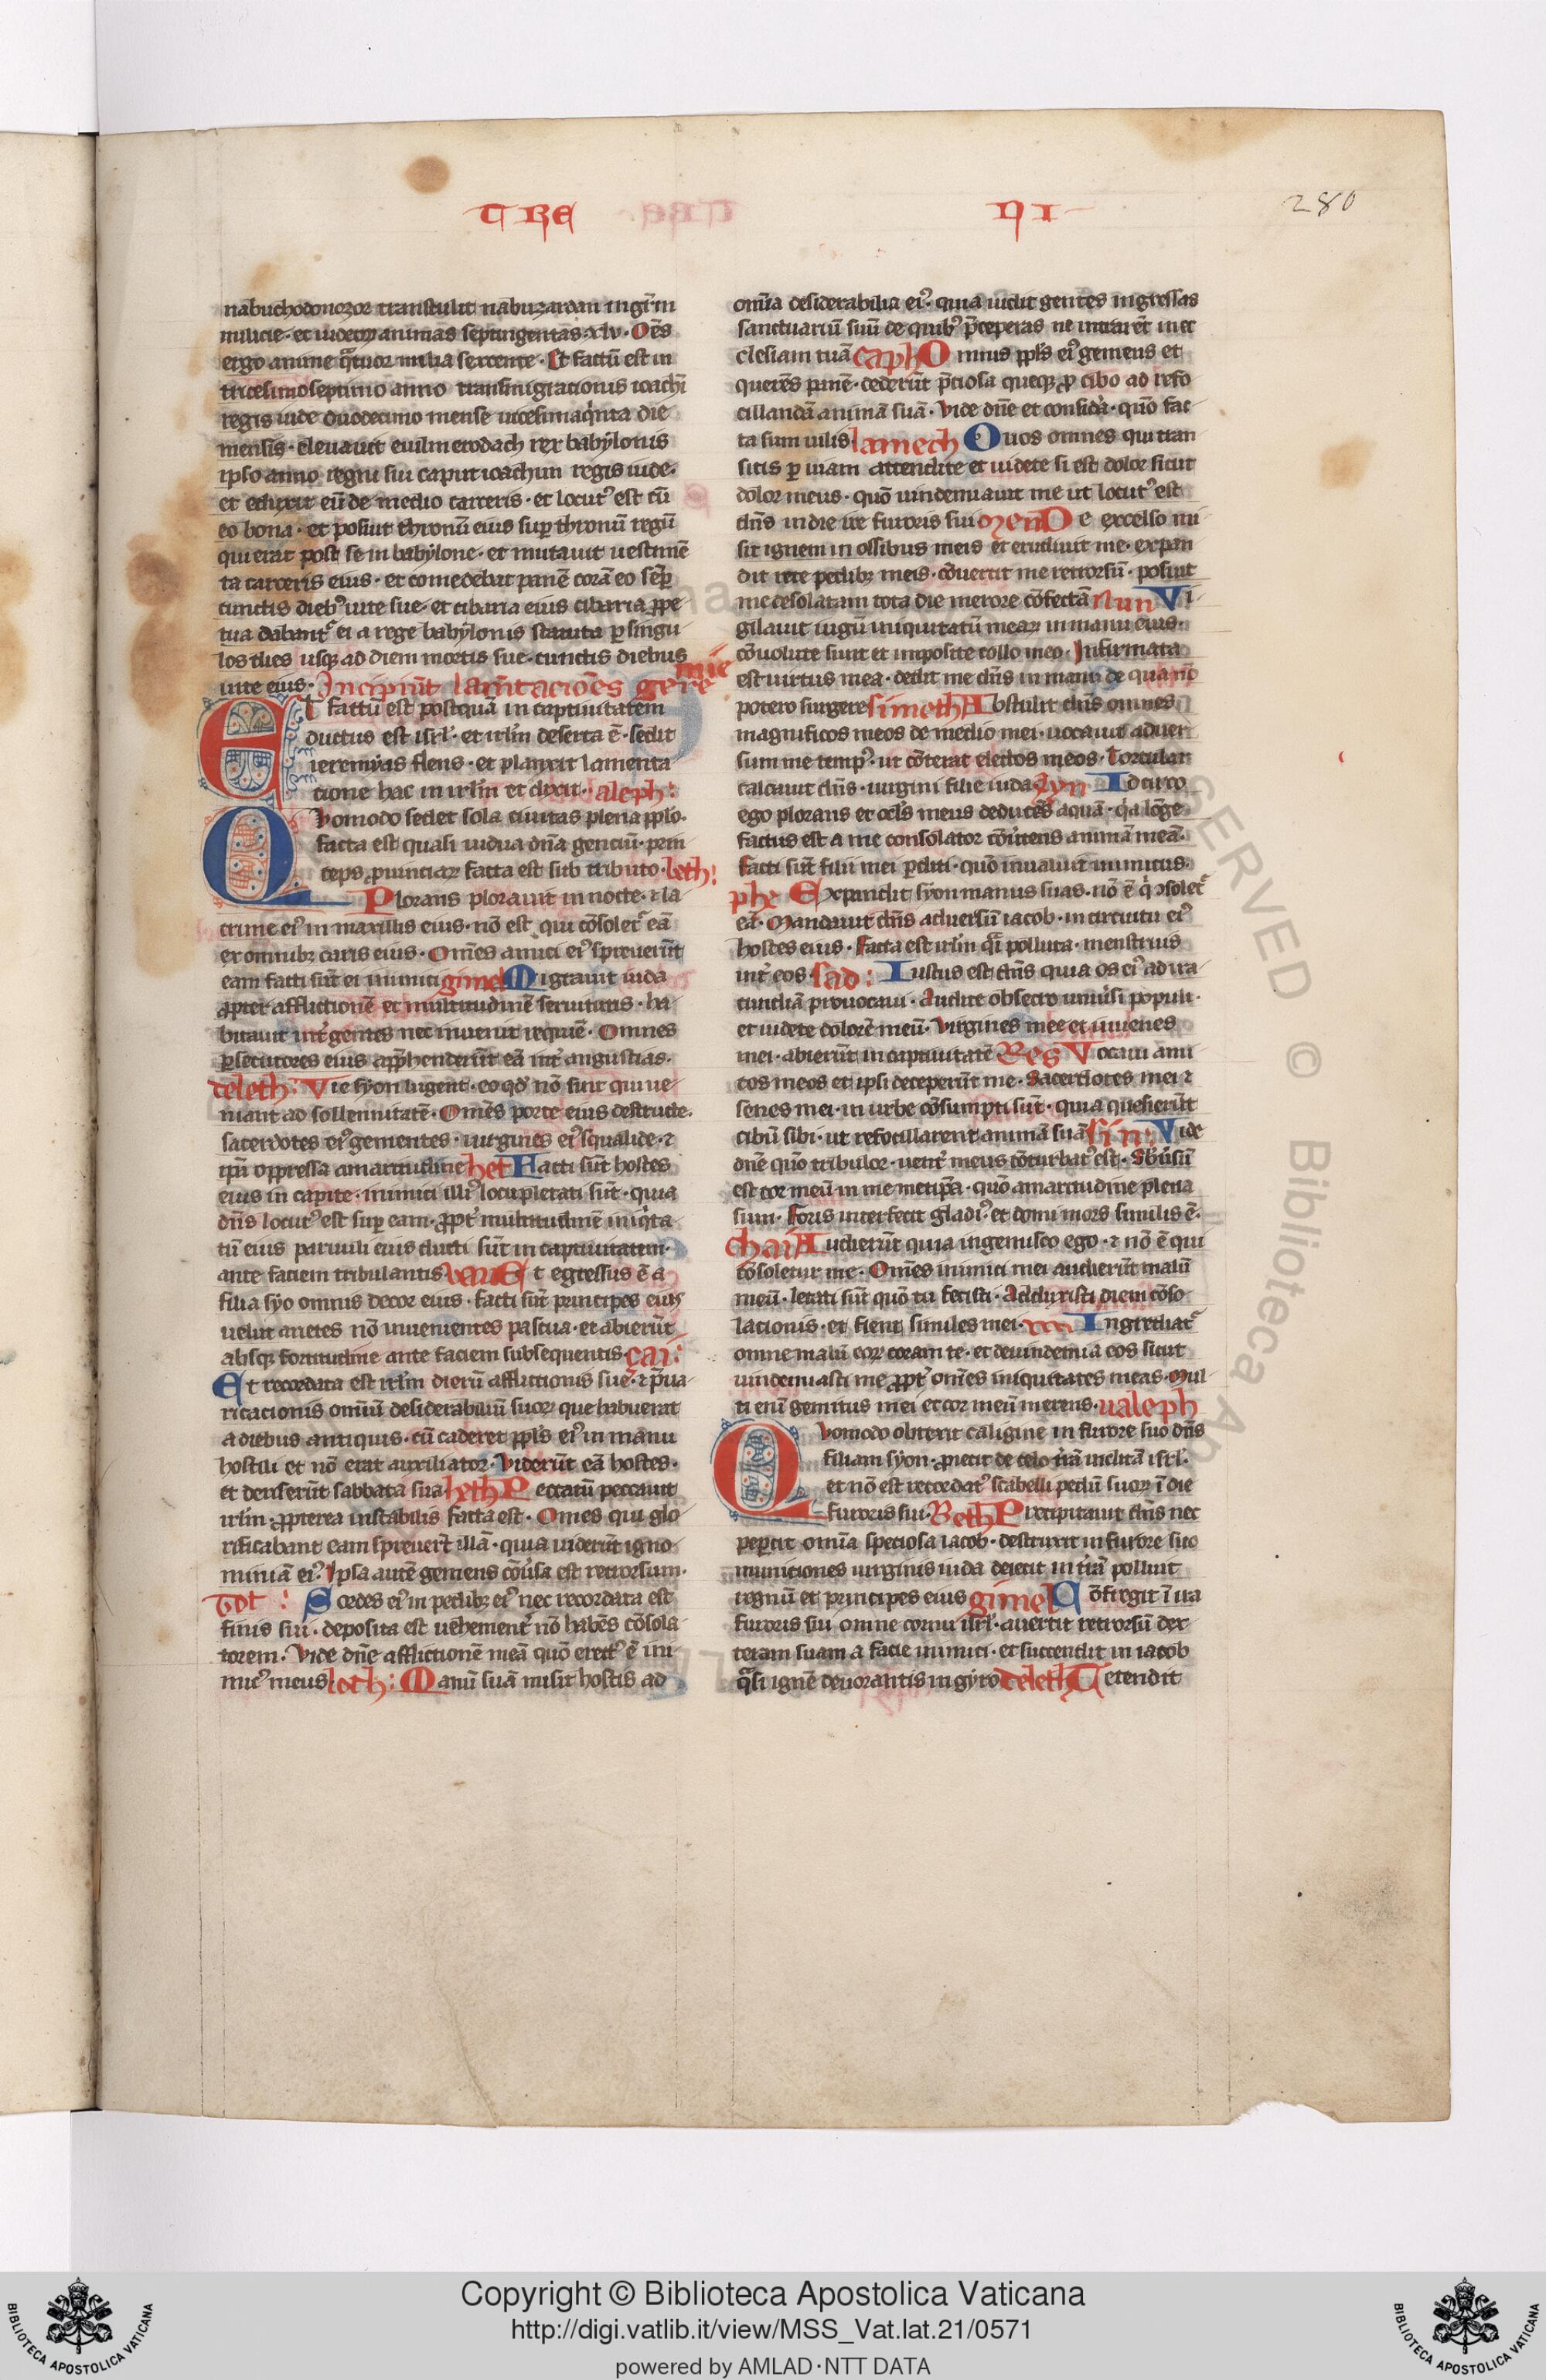 TRE NI 280
nabuchodonozor transtulit nabuzardan mgr̄m
milicie · et iudeoꝝ animas septingentas · xlv · Oēs
ergo anime q̄tuor milia sexcente · Et factū est in
tricesimo septimo anno transmigracionis ioachī
regis iude duodecimo mense uicesima q̇nta die
mensis · eleuauit euilmerodach rex babylonis
ipso anno regni sui caput ioachim regis iude ·
et eduxit eū de medio carceris · et locutꝰ est cū
eo bona · et posuit thronū eius suꝑ thronū regū
qui erāt post se in babylone · et mutauit uestimē
ta carceris eius · et comedebat panē corā eo semꝑ
cunctis diebꝰ uite sue · et cibaria eius cibaria ꝑpe
tua dabant᷑ ei a rege babylonis statuta ꝑ singu
los dies usqꝫ ad diem mortis sue · cunctis diebus
uite eius · Incipiūt lam̄tacioēs gere mie
Et factū est postquā in captiuitatem
ductus est isrl̓ · et irl̓m deserta ē · sedit
ieremyas flens · et planxit lamenta
cione hac in irl̓m et dixit · aleph :
Quomodo sedet sola ciuitas plena ppl̓o ·
facta est quasi uidua dn̄a genciū · prin
ceps prouinciaꝝ facta est sub tributo · beth :
Plorans plorauit in nocte · ⁊ la
crime eiꝰ in maxillis eius · nō est qui cōsolet᷑ eā
ex omnibꝫ caris eius · Omēs amici eiꝰ spreuerūt
eam facti sūt ei inimici gimel Migrauit iuda
ꝓpter afflictionē et multitudinē seruitutis · ha
bitauit int̓ gentes nec inuenit requiē · Omnes
ꝑsecutores eius app̄henderūt eā int̓ angustias ·
deleth : Vie syon lugent · eo qd̓ nō sint qui ue
niant ad sollennitatē · Omēs porte eius destructe ·
sacerdotes eiꝰ gementes · uirgines eiꝰ squalide · ⁊
ip̄a oppressa amaritudine het Facti sūt hostes
eius in capite · inimici illiꝰ locupletati sūt · quia
dn̄s locutꝰ est suꝑ eam · ꝓpt̓ multitudinē iniq̇ta
tū eius paruuli eius ducti sūt in captiuitatem ·
ante faciem tribulantis vau Et egressus ē a
filia syō omnis decor eius · facti sūt principes eius
uelut arietes nō inuenientes pascua · et abierūt
absqꝫ fortitudine ante faciem subsequentis · çai :
Et recordata est irl̓m dierū afflictionis sue · ⁊ p̄ua
ricacionis omīū desiderabiliū suoꝝ que habuerat
a diebus antiquis · cū caderet ppl̓s eiꝰ in manu
hostili et nō erat auxiliator · Viderūt eā hostes ·
et deriserūt sabbata sua heth Peccatū peccauit
irl̓m ꝓpterea instabilis facta est · Omēs qui glo
rificabant eam spreuer̄t illā · quia uiderūt igno
miniā eiꝰ · Ipsa autē gemens cōūsa est retrorsum ·
Tet : Sordes eiꝰ in pedibꝫ eiꝰ nec recordata est
finis sui · deposita est uehement̓ nō habēs cōsola
torem · Vide dn̄e afflictionē meā quō erectꝰ ē ini
micꝰ meus ioth : Manū suā misit hostis ad
om̄ia desiderabilia eiꝰ · quia uidit gentes ingressas
sanctuariū suū de quibꝰ p̄ceperas ne intrarēt in ec
clesiam tuā caph Omnis ppl̓s eiꝰ gemens et
querēs panē · dederūt p̄ciosa queqꝫ ꝓ cibo ad refo
cillandā animā suā · Vide dn̄e et considȧ · quō fac
ta sum uilis lamech O uos omnes qui tran
sitis ꝑ uiam attendite et uidete si est dolor sicut
dolor meus · quō uindemiauit me ut locutꝰ est
dn̄s in die ire furoris sui mem De excelso mi
sit ignem in ossibus meis et erudiuit me · expan
dit rete pedibꝫ meis · cōuertit me retrorsū · posuit
me desolatam tota die merore cōfectā nun Vi
gilauit iugū iniquitatū meaꝝ in manu eius ·
cōuolute sunt et imposite collo meo · Infirmata
est uirtus mea · dedit me dn̄s in manu de qua nō
potero surgere simeth Abstulit dn̄s omnes
magnificos meos de medio mei · uocauit aduer
sum me tempꝰ · ut cōterat electos meos · Torcular
calcauit dn̄s · uirgini filie iuda ayn Idcirco
ego plorans et ocl̓s meus deducēs aquā · q̇a lōge
factus est a me consolator cōūtens animā meā ·
facti sūt filii mei ꝑditi · quō inualuit inimicus ·
phe Expandit syon manus suas · nō ē q̇ ↄsolet᷑
eā · Mandauit dn̄s aduersū iacob · in circuitu eiꝰ
hostes eius · Facta est irl̓m q̄i polluta · menstruis
int̓ eos · sad : Iustus est dn̄s quia os eiꝰ ad ira
cundiā prouocaui · Audite obsecro uniūsi populi ·
et uidete dolorē meū · Virgines mee et iuuenes
mei · abierūt in captiuitatē · Res Vocaui ami
cos meos et ipsi deceperūt me · Sacerdotes mei ⁊
senes mei · in urbe cōsumpti sūt · quia quesierūt
cibū sibi · ut refocillarent animā suā sin : Vide
dn̄e quō tribulor · uent̓ meus cōturbatꝰ est · Sb̓ūsū
est cor meū in me metip̄a · quō amaritudine plena
sum · Foris interfecit gladiꝰ · et domi mors similis ē ·
chai Audierūt quia ingemisco ego · ⁊ nō ē qui
cōsoletur me · Omēs inimici mei audierūt malū
meū · letati sūt quō tu fecisti · Adduxisti diem cōso
lacionis · et fient similes mei · Ingrediat᷑
omne malū eoꝝ coram te · et deuindemia eos sicut
uindemiasti me ꝓpt̓ omēs iniquitates meas · Mul
ti enī gemitus mei et cor meū merens · ualeph
Quomodo obtexit caligine in furore suo dn̄s
filiam syon · ꝓiecit de celo t̓rā inclitā isrl̓ ·
et nō est recordatꝰ scabelli pedū suoꝝ ī die
furoris sui · Beth Precipitauit dn̄s nec
peꝑcit om̄ia speciosa iacob · destruxit in furore suo
municiones uirginis iuda deiecit in t̓rā polluit
regnū et principes eius gimel Cōfregit ī ira
furoris sui omne cornu isrl̓ · auertit retrorsū dex
teram suam a facie inimici · et succendit in iacob
q̄si ignē deuorantis in gyro deleth Tetendit
Copyright © Biblioteca Apostolica Vaticana
http://digi.vatlib.it/view/MSS_Vat.lat.21/0571
powered by AMLAD·NTT DATA
BIBLIOTECA APOSTOLICA VATICANA
BIBLIOTECA APOSTOLICA VATICANA